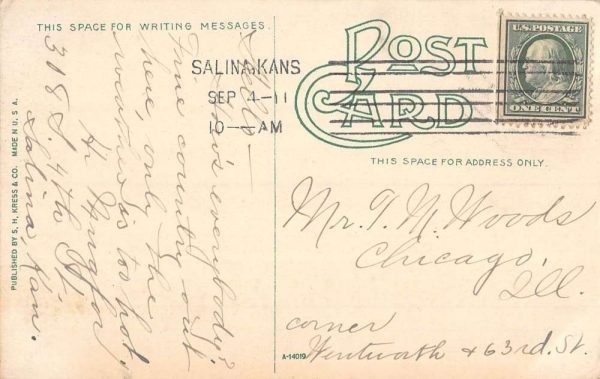 THIS SPACE FOR WRITING MESSAGES.
POST
CARD
THIS SPACE FOR ADDRESS ONLY.
U.S. POSTAGE
ONE CENT
SALINA, KANS
SEP 4-11
10—AM
Hello—
How is everybody?
Fine country out
here, only the
weather is too hot.
318 S. 4th St.
Salina Kan.
Mr. T. M. Woods
Chicago,
Ill.
corner
Wentworth & 63rd. St.
A-14019
PUBLISHED BY S. H. KRESS & CO. MADE IN U. S. A.